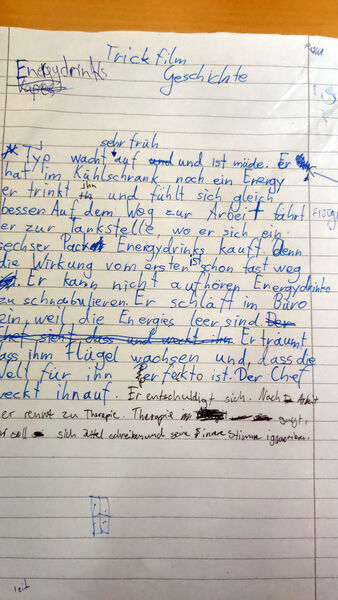 Trickfilm
Energydrinks Geschichte
sehr früh
* Typ wacht auf und und ist müde. Er
hat im Kühlschrank noch ein Energy
er trinkt ihn und fühlt sich gleich
bessen Auf dem Weg zur Arbeit fährt
er zur Tankstelle, wo er sich ein
sechser Pack Energydrinks kauft. denn
die Wirkung vom ersten ist schon fast weg
Er kann nicht aufhören Energydrinke
zu schnabulieren. Er schläft im Büro
ein, weil die Energies leer sind. Der
Chef sieht dass und weckt ihn Er träumt
dass ihm Flügel wachsen und, dass die
Welt für ihn Perfekto ist. Der Chef
weckt ihn auf. Er entschuldigt sich. Nach Arbeit
er rennt zu Therapie. Therapie sagt,
er soll sich schreiben und seine innere Stimme ignorieren.